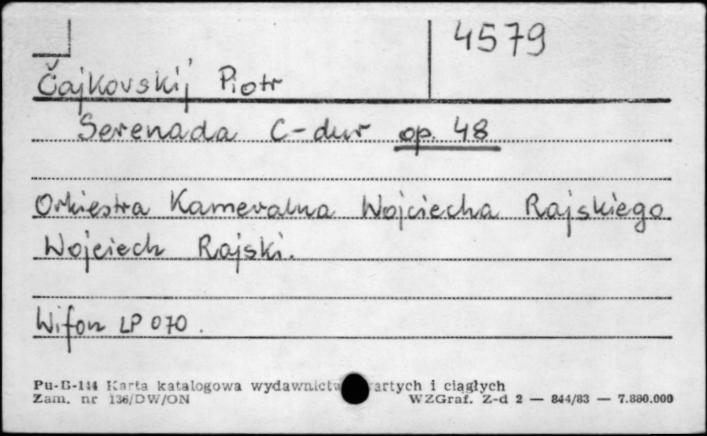 4579
Čajkovskij Piotr
Serenada C-dur op. 48
Orkiestra Kameralna Wojciecha Rajskiego
Wojciech Rajski.
Wifon LP 070.
Pu-B-144 Karta katalogowa wydawnictw artych i ciągłych
Zam. nr 136/DW/ON WZGraf. Z-d 2 — 844/83 — 7.880.000